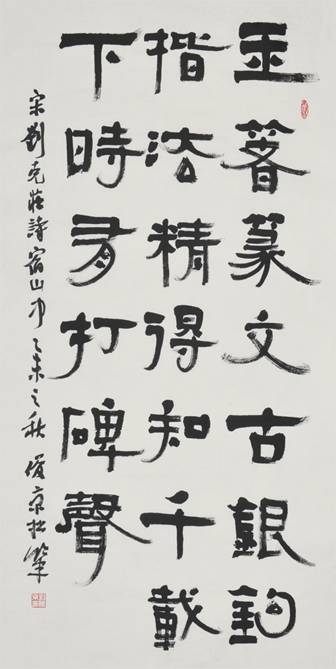 玉箸篆文古銀鈎
楷法精得知千載
下時有打碑聲
宋劉克莊詩宿山中乙未之秋俊京松筆